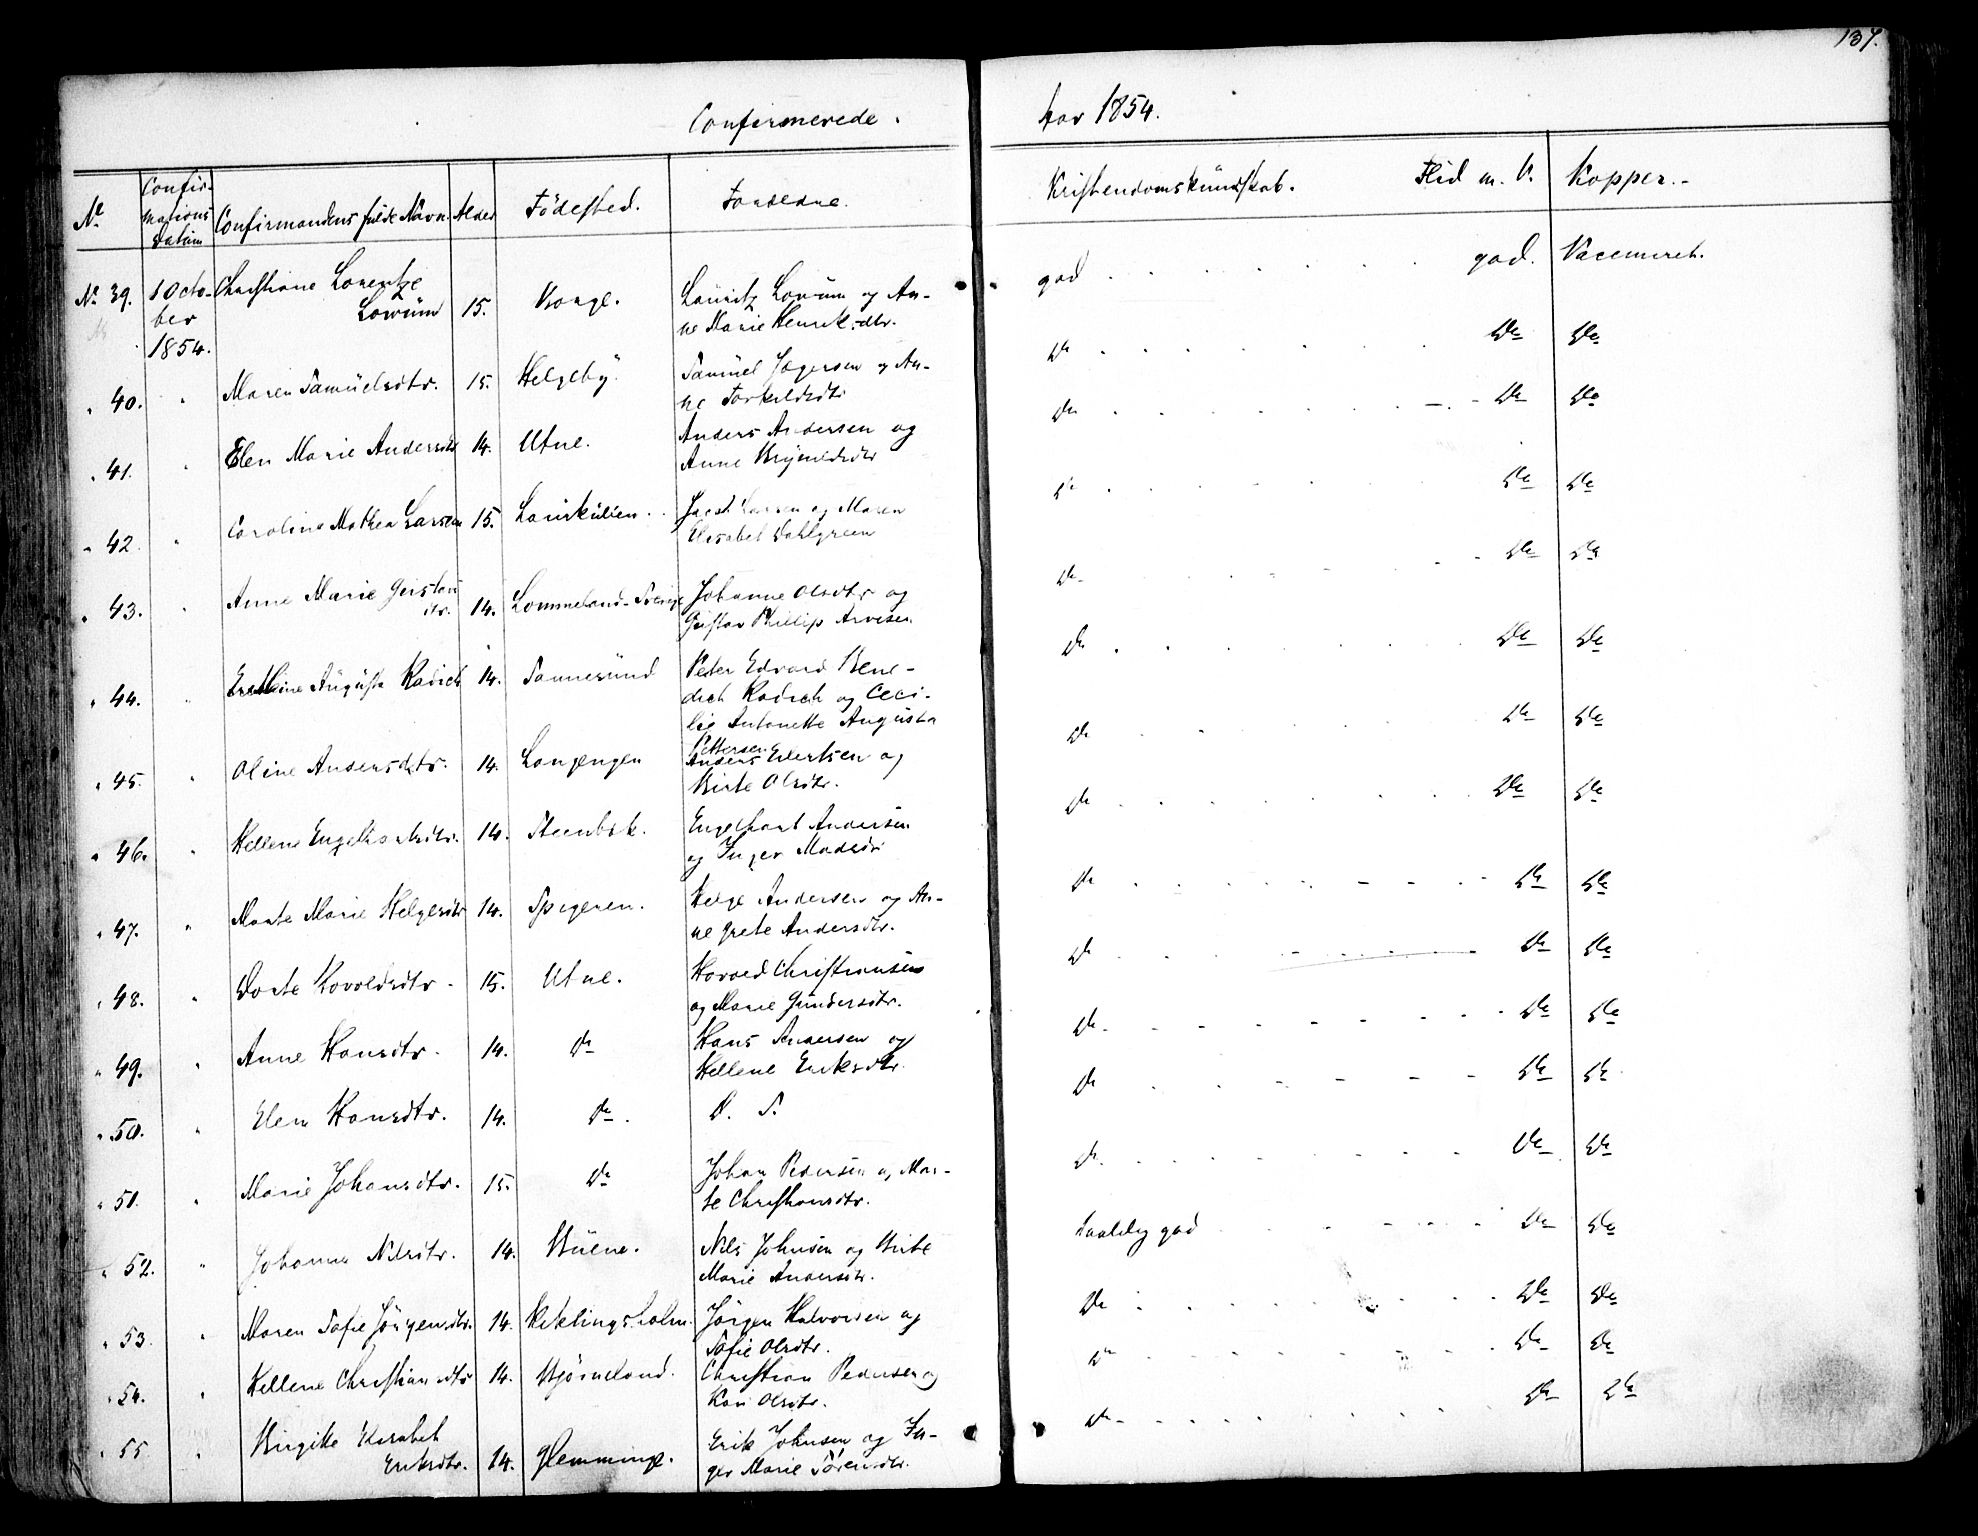 137.
Confirmerede.
Aar 1854.
No Confir-
mations
Datum Confirmandens fulde Navn Alder Födested. Foreldrene.
Kristendomskundskab. Flid m. V. Kopper.-
No 39. 1 Octo-
ber
1854. Christiane Lorentze
Lorum 15. Borge. Lauritz Lorum og An-
ne Marie Henriksdtr. god god. Vaccineret.
" 40. " Maren Samuelsdtr. 15. Helgeby. Samuel Jögersen og An-
ne Torkildsdtr Do Do Do
" 41. " Elen Marie Andersdtr 14. Utne. Anders Andersen og
Anne Do Do Do
" 42. " Caroline Mathea Larsen 15. Laurkullen. Jacob Larsen og Maren
Elisabet Dahlgreen Do Do Do
" 43. " Anne Marie Gustavs
dtr. 14. Lommeland-Sverige Johanne Olsdtr og
Gustav Phillip Arvesen Do Do Do
" 44. " Augusta Radich 14. Sannesund Peter Edvard Bene-
dict Radich og Ceci-
lie Antonette Augusta
Pettersen Do Do Do
" 45. " Oline Andersdtr. 14. Langengen Anders Evertsen og
Birte Olsdtr. Do Do Do
" 46. " Hellene Engelhartsdtr. 14. Steenbek. Engelhart Andersen
og Inger Madsdtr Do Do Do
" 47. " Marte Marie Helgesdtr 14. Spigeren. Helge Andersen og An-
ne Grete Andersdtr. Do Do Do
" 48. " Dorte Hovoldsdtr. 15. Utne. Hovold Christiansen
og Marie Gundersdtr. Do Do Do
" 49. " Anne Hansdtr. 14. Do Hans Andersen og
Hellene Eriksdtr. Do Do Do
" 50. " Elen Hansdtr. 14. Do. D. S. Do Do Do
" 51. " Marie Johansdtr. 15. Do Johan Pedersen og Mar-
te Christiansdtr. Do Do Do
" 52. " Johanne Nilsdtr. 14. Buene. Nils Johnsen og Birte
Marie Andersdtr. taalelig god Do Do
" 53. " Maren Sofie Jörgensdtr. 14. Kjeklingsholm. Jörgen Halvorsen og
Sofie Olsdtr. Do Do Do
" 54. " Hellene Christiansdtr 14. Bjørneland. Christian Pedersen og
Kari Olsdtr. Do Do Do
" 55. " Birgitte Elisabet
Eriksdtr. 14. Glemminge. Erik Johnsen og In-
ger Marie Sörensdtr. Do Do Do